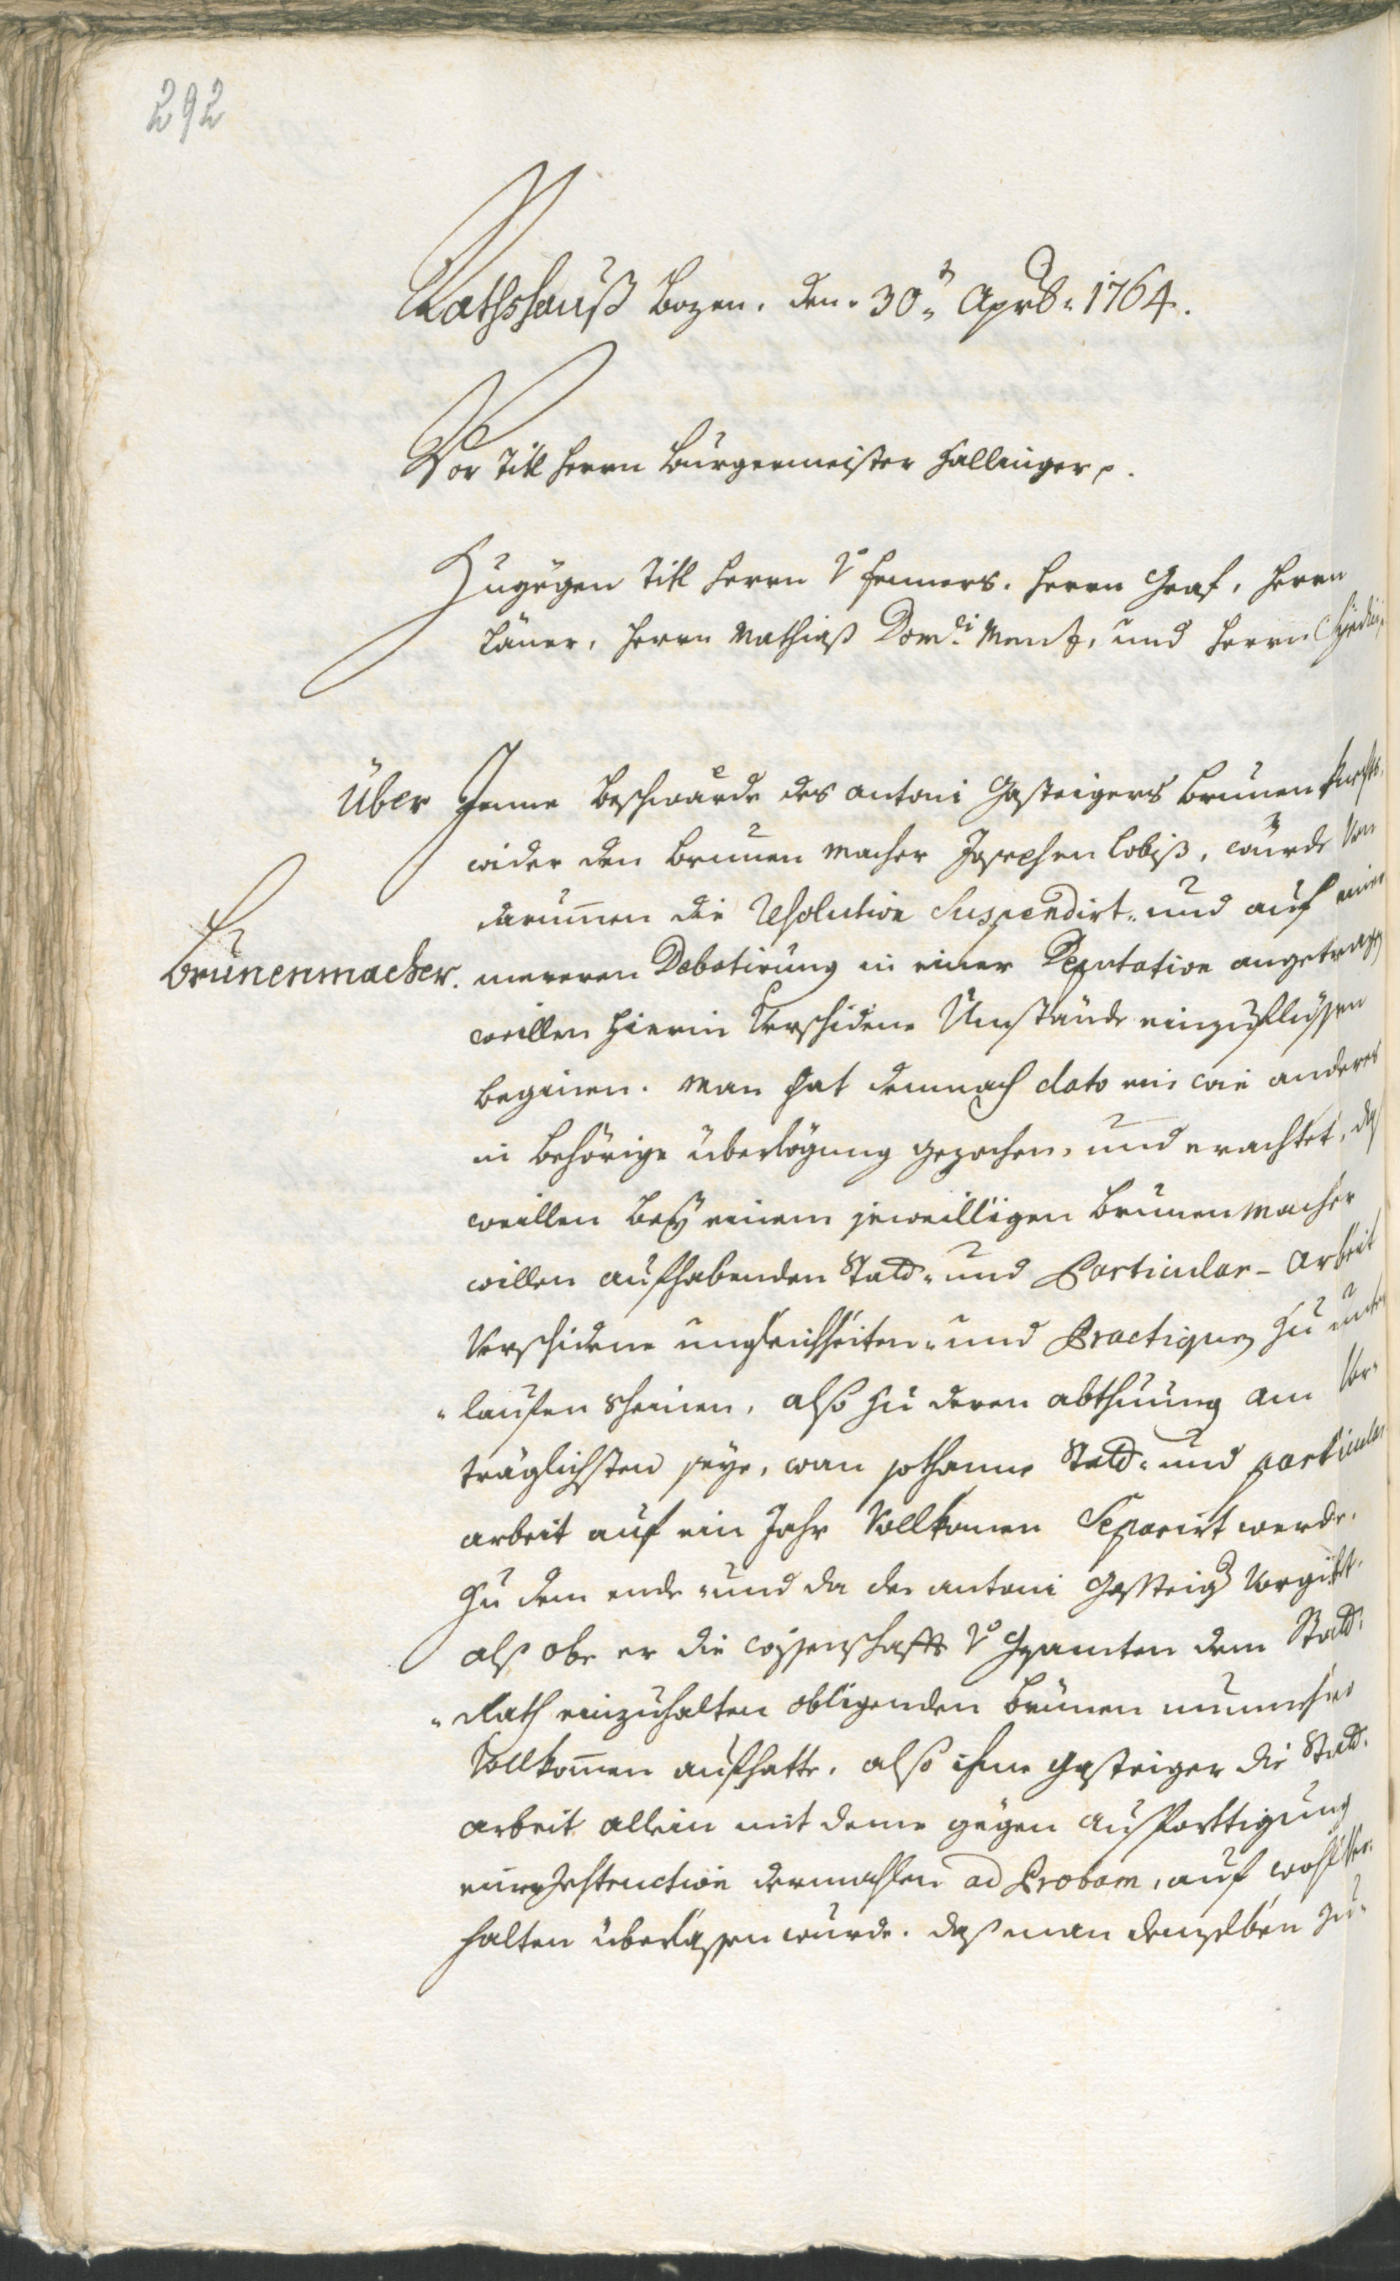 292
Rathshauß Bozen. den. 30.ten Aprils. 1764.
Vor Titl Herrn Burgermeister Hallinger p.
Zugegen Titl Herrn v Henners. Herrn Graf, Herrn
Läner, Herrn Mathiaß Domci Menz, und Herrn
Über Jenne beschwärde des Antoni Gasteigers Brunen knechts
wider den Brunen macher Josephen Lobiß, wurde von
darumen die Resolution Suspendirt. und auf eine
Brunenmacher. mereren Debatirung in einer Deputation angetragen
weillen hierin Verschidene Umstände einzuflüssen
beginen. Man hat demnach dato ein wie anderes
in behörige überlögung gezochen, und erachtet, daß
weillen bey einem jeweilligen Brunen macher
willen aufhabenden Statt- und Particular-Arbeit
Verschidene ungleichheiten- und Practiquen zu unter
-lauffen scheinen, also zu deren abthuung am Vor-
träglichsten seye, wan sothanne Statt- und particular
arbeit auf ein Jahr Vollkomen Separirt werde.
Zu dem ende und da der Antoni Gasteiger Vorgibt.
alß obe er die Wissenschafft v Gesamten dem Statt-
-Rath einzuhalten obligenden Brünen nunmehro
Vollkomen aufhatte. also ihme Gasteiger die Statt-
arbeit allein mit deme gegen Ausförttigung
einer Instruction dermahlen ad Probam, auf wohl Ver-
halten überlassen wurde. daß man demselben zu-